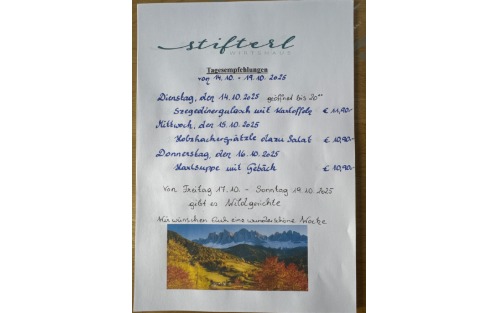 stifterl
WIRTSHAUS
Tagesempfehlungen
von 14.10. - 19.10.2025
Dienstag, den 14.10.2025 geöffnet bis 20⁰⁰
Szegedinergulasch mit Kartoffeln € 11,90-
Mittwoch, den 15.10.2025
Holzhackerspätzle dazu Salat € 10,90-
Donnerstag, den 16.10.2025
mit Gebäck € 10,90-
Von Freitag 17.10. - Sonntag 19.10.2025
gibt es Wildgerichte
Wir wünschen Euch eine wunderschöne Woche